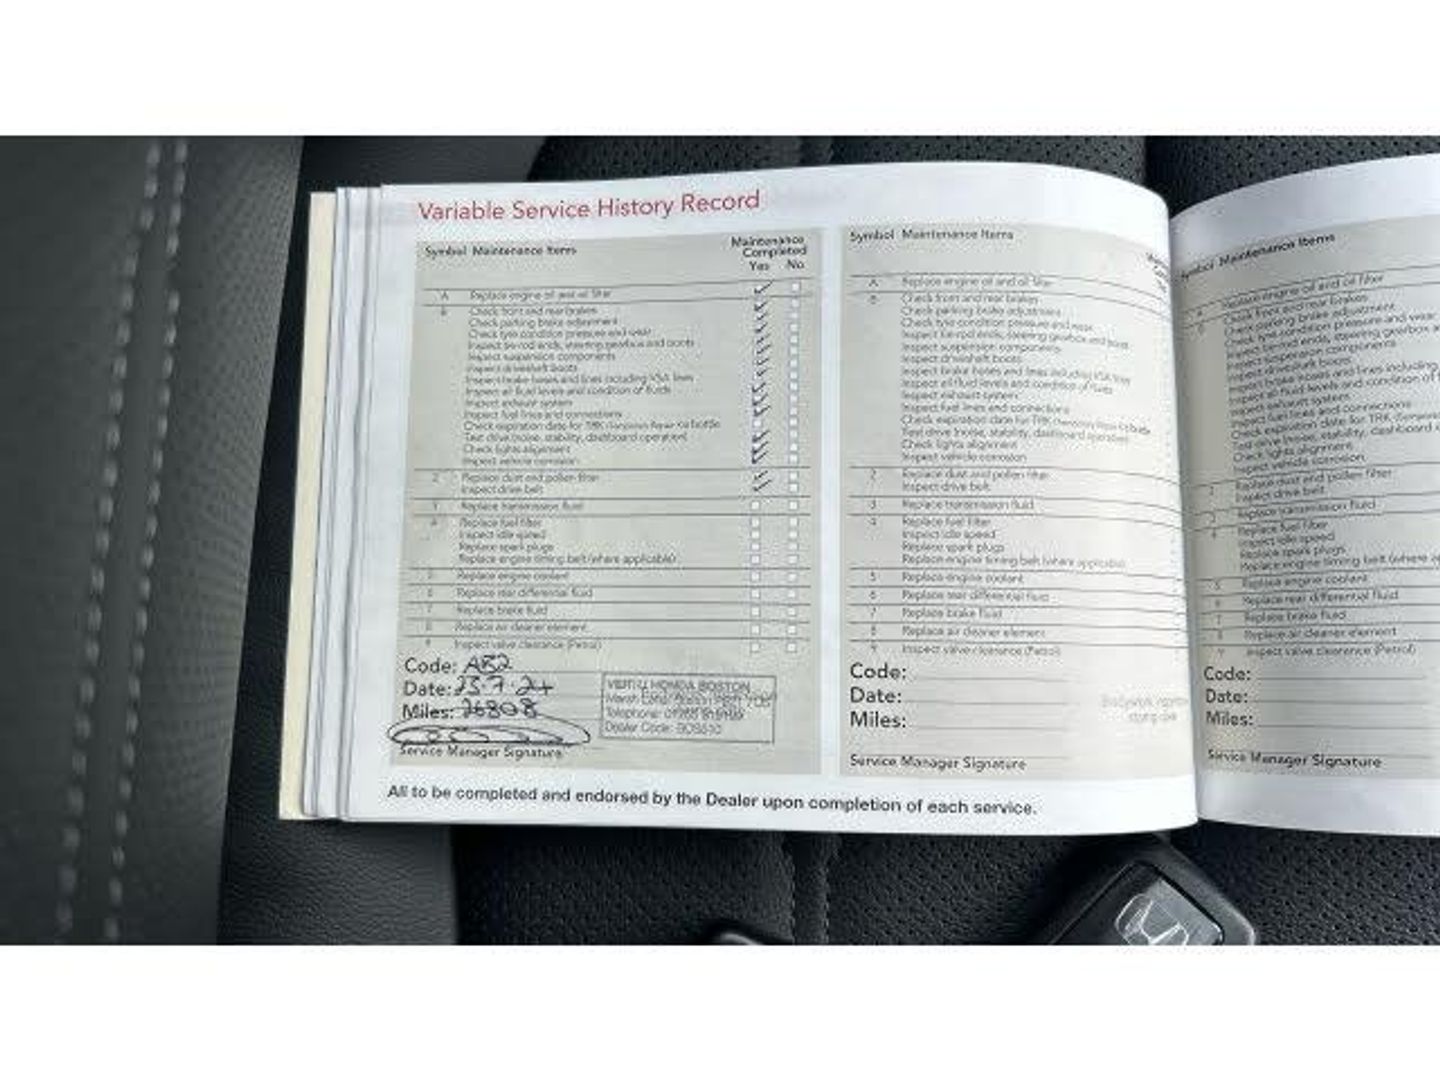 Variable Service History Record
Symbol Maintenance Items
Maintenance
Completed
Yes No
A Replace engine oil and oil filter
B Check front and rear brakes
Check parking brake adjustment
Check tyre condition pressure and wear
Inspect tie-rod ends, steering gearbox and boots
Inspect suspension components
Inspect driveshaft boots
Inspect brake hoses and lines including VSA lines
Inspect all fluid levels and condition of fluids
Inspect exhaust system
Inspect fuel lines and connections
Check expiration date for TRK (Temporary Repair Kit) bottle
Test drive (noise, stability, dashboard operation)
Check lights alignment
Inspect vehicle corrosion
2 Replace dust and pollen filter
Inspect drive belt
3 Replace transmission fluid
4 Replace fuel filter
Inspect idle speed
Replace spark plugs
Replace engine timing belt (where applicable)
5 Replace engine coolant
6 Replace rear differential fluid
7 Replace brake fluid
8 Replace air cleaner element
9 Inspect valve clearance (Petrol)
Code: AB2
Date: 23.7.24
Miles: 26808
Service Manager Signature
VERTU HONDA BOSTON
Telephone:
Dealer Code:
Symbol Maintenance Items
A Replace engine oil and oil filter
B Check front and rear brakes
Check parking brake adjustment
Check tyre condition pressure and wear
Inspect tie-rod ends, steering gearbox and boots
Inspect suspension components
Inspect driveshaft boots
Inspect brake hoses and lines including VSA lines
Inspect all fluid levels and condition of fluids
Inspect exhaust system
Inspect fuel lines and connections
Check expiration date for TRK (Temporary Repair Kit) bottle
Test drive (noise, stability, dashboard operation)
Check lights alignment
Inspect vehicle corrosion
2 Replace dust and pollen filter
Inspect drive belt
3 Replace transmission fluid
4 Replace fuel filter
Inspect idle speed
Replace spark plugs
Replace engine timing belt (where applicable)
5 Replace engine coolant
6 Replace rear differential fluid
7 Replace brake fluid
8 Replace air cleaner element
9 Inspect valve clearance (Petrol)
Code:
Date:
Miles:
Service Manager Signature
All to be completed and endorsed by the Dealer upon completion of each service.
Symbol Maintenance Items
Replace engine oil and oil filter
Check front and rear brakes
Check parking brake adjustment
Check tyre condition pressure and wear
Inspect tie-rod ends, steering gearbox a
Inspect suspension components
Inspect driveshaft boots
Inspect brake hoses and lines including
Inspect all fluid levels and condition of f
Inspect exhaust system
Inspect fuel lines and connections
Check expiration date for TRK (Temporary
Test drive (noise, stability, dashboard o
Check lights alignment
Inspect vehicle corrosion
2 Replace dust and pollen filter
Inspect drive belt
3 Replace transmission fluid
4 Replace fuel filter
Inspect idle speed
Replace spark plugs
Replace engine timing belt (where ap
5 Replace engine coolant
6 Replace rear differential fluid
7 Replace brake fluid
8 Replace air cleaner element
9 Inspect valve clearance (Petrol)
Code:
Date:
Miles:
Service Manager Signature